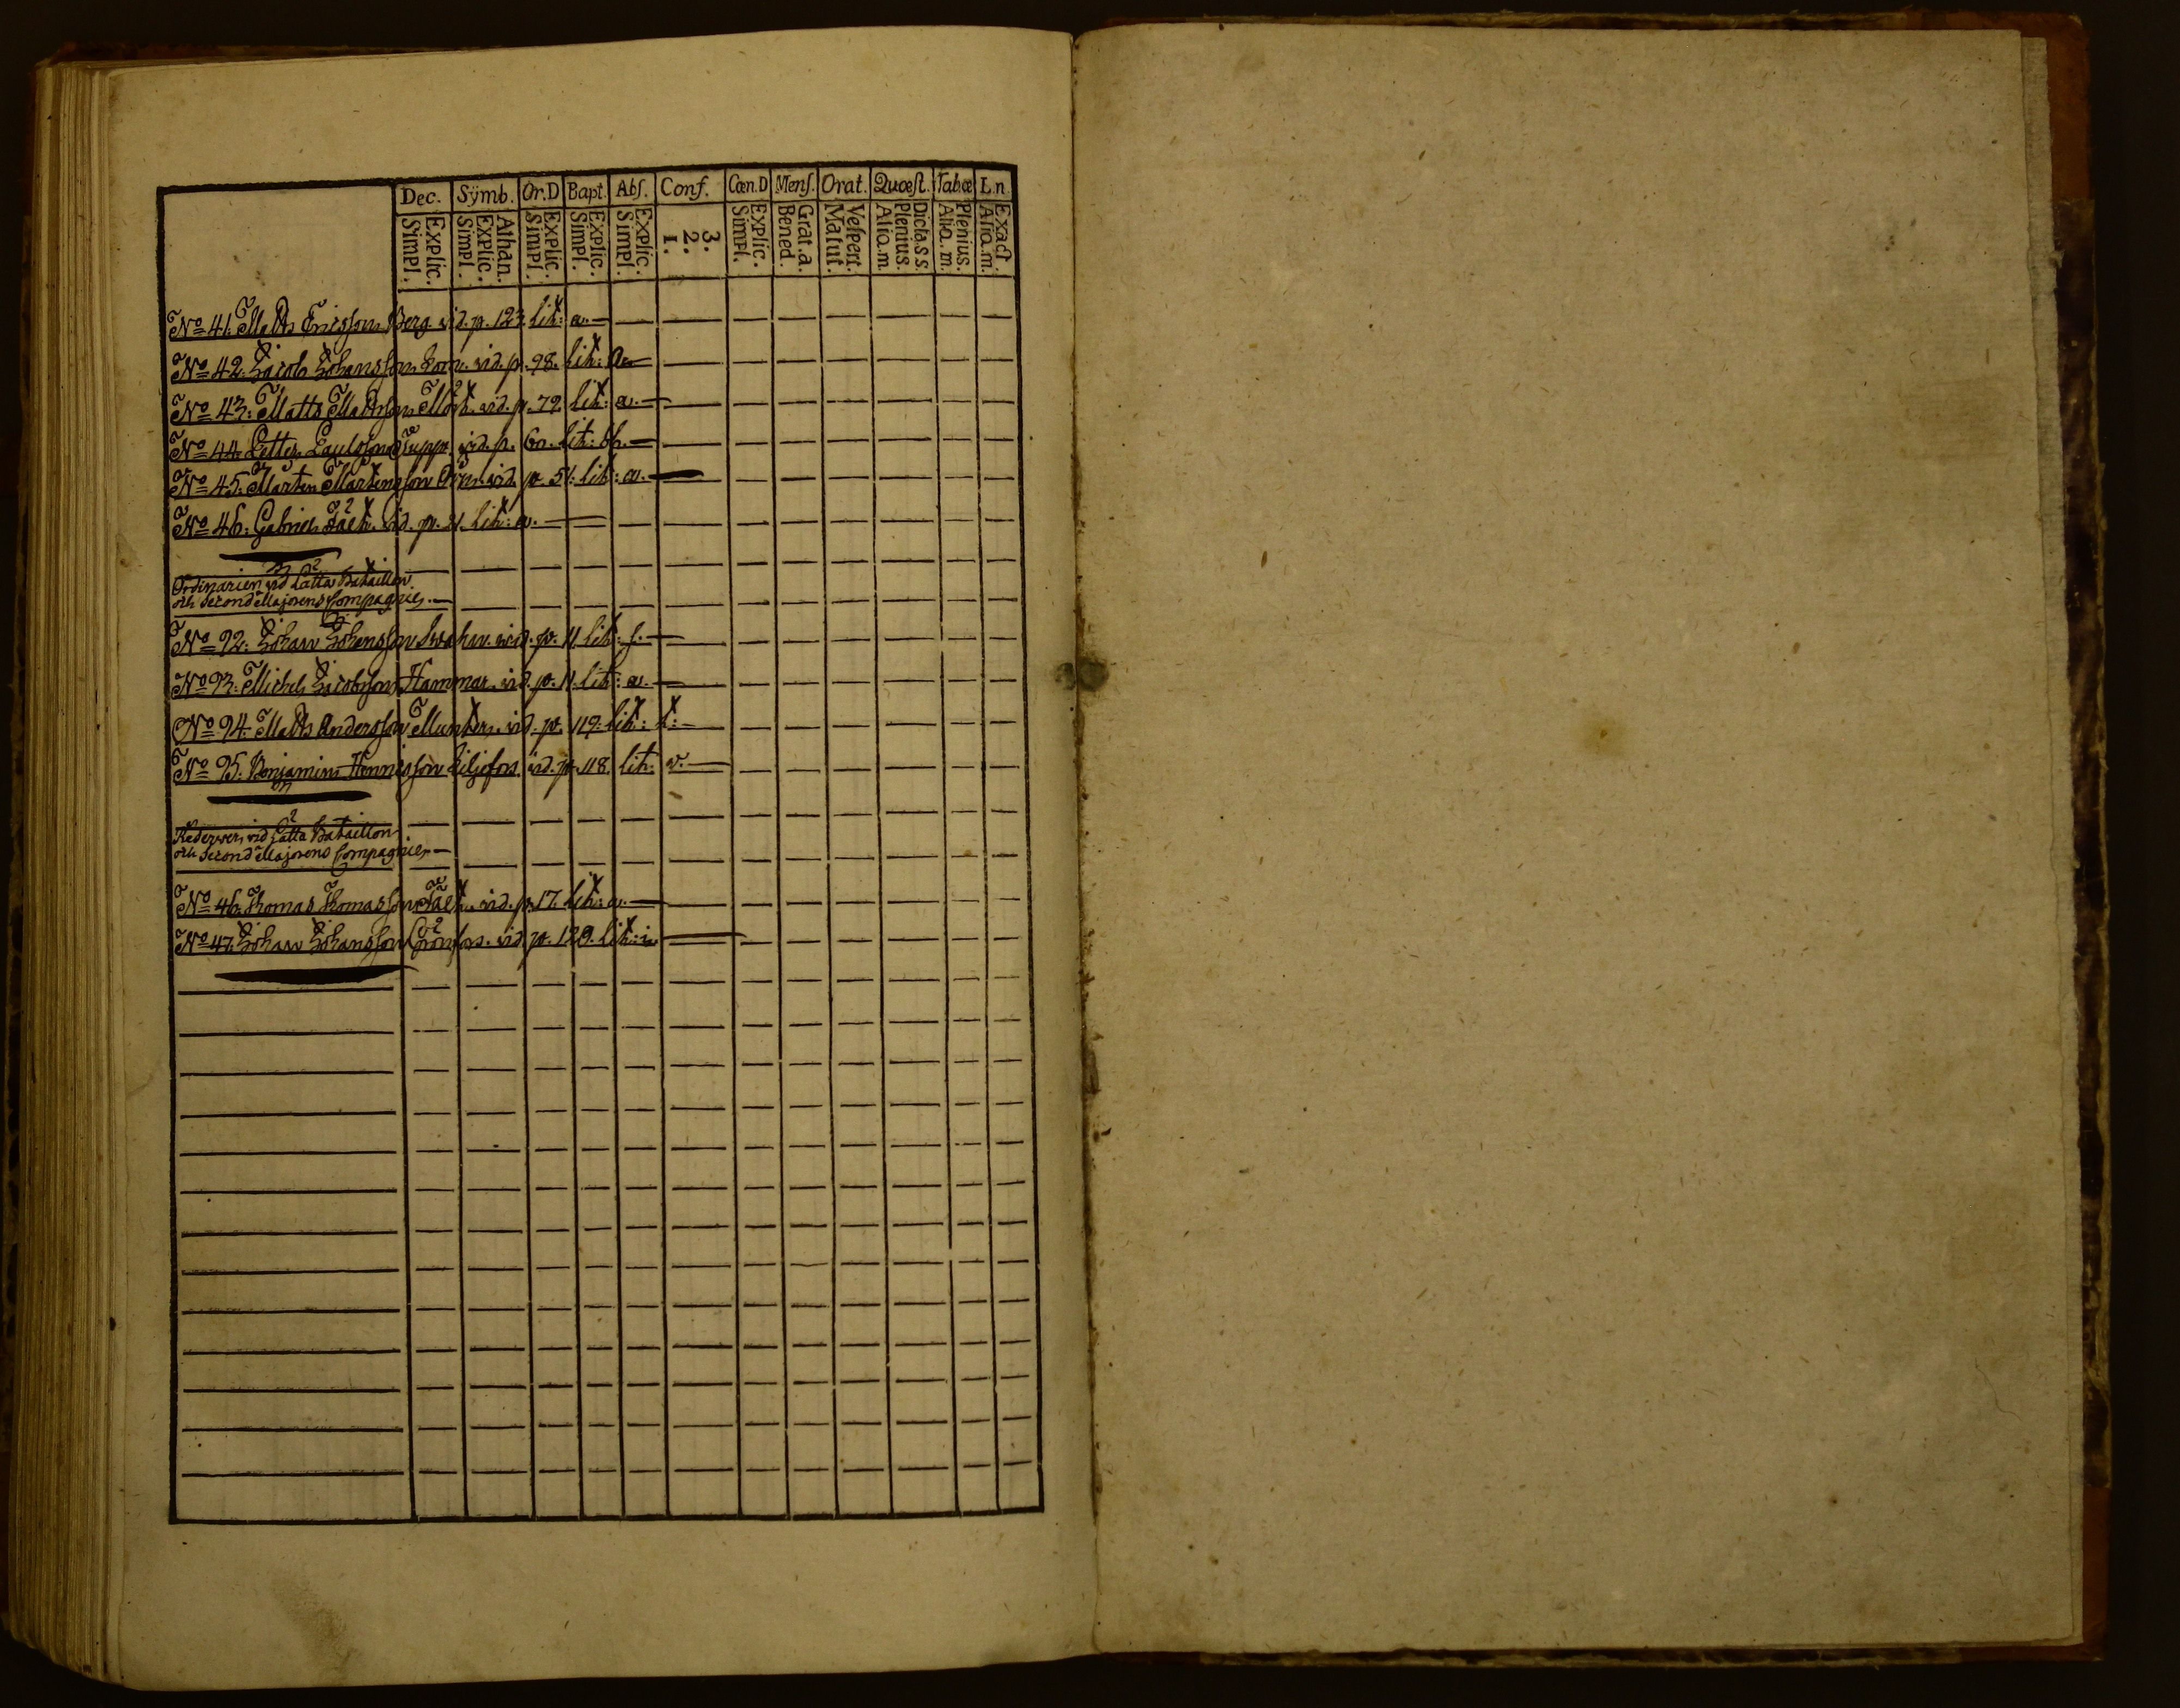 Dec. Sÿmb. Or.D Bapt. Abſ. Conf. Cœn.D Menſ. Orat. Quœſt. Tabœ L.n.
Simpl. Explic. Simpl. Explic. Athan. Simpl. Explic. Simpl. Explic. Simpl. Explic. 1. 2. 3. Simpl. Explic. Bened. Grat.a. Matut. Veſpert. Alia.m. Plenius. Dicta.s s. Alia.m. Plenius. Alia.m. Exact.
No 41. Matts Ericsson Berg. vid. p. 123. lit: a.
No 42. Jacob Johansson vid. p. 98. lit: a.
No 43: Matts Mattsson vid. p. 72. lit: a.
No 44. Petter Paulsson vid. p. 60. lit: bb.
No 45. Mårten Mårtensson vid. p. 51. lit: a.
No 46. Gabriel vid. p. 21. lit: a.
Ordinarien vid Bataillon
och Second Majorens Compagnie.
No 92. Johan Johansson Swahn. vid. p. 11. lit: f.
No 93: Michel Jacobsson Hammar. vid. p. 11. lit: a.
No 94. Matts Andersson Munter. vid. p. 119. lit: t:
No 95. Benjamin Liljefors. vid. p. 118. lit: v.
vid Bataillon
och Second Majorens Compagnie.
No 46. Thomas Thomasson vid. p. 17. lit: a.
No 47. Johan Johansson vid p. 129. lit: i.